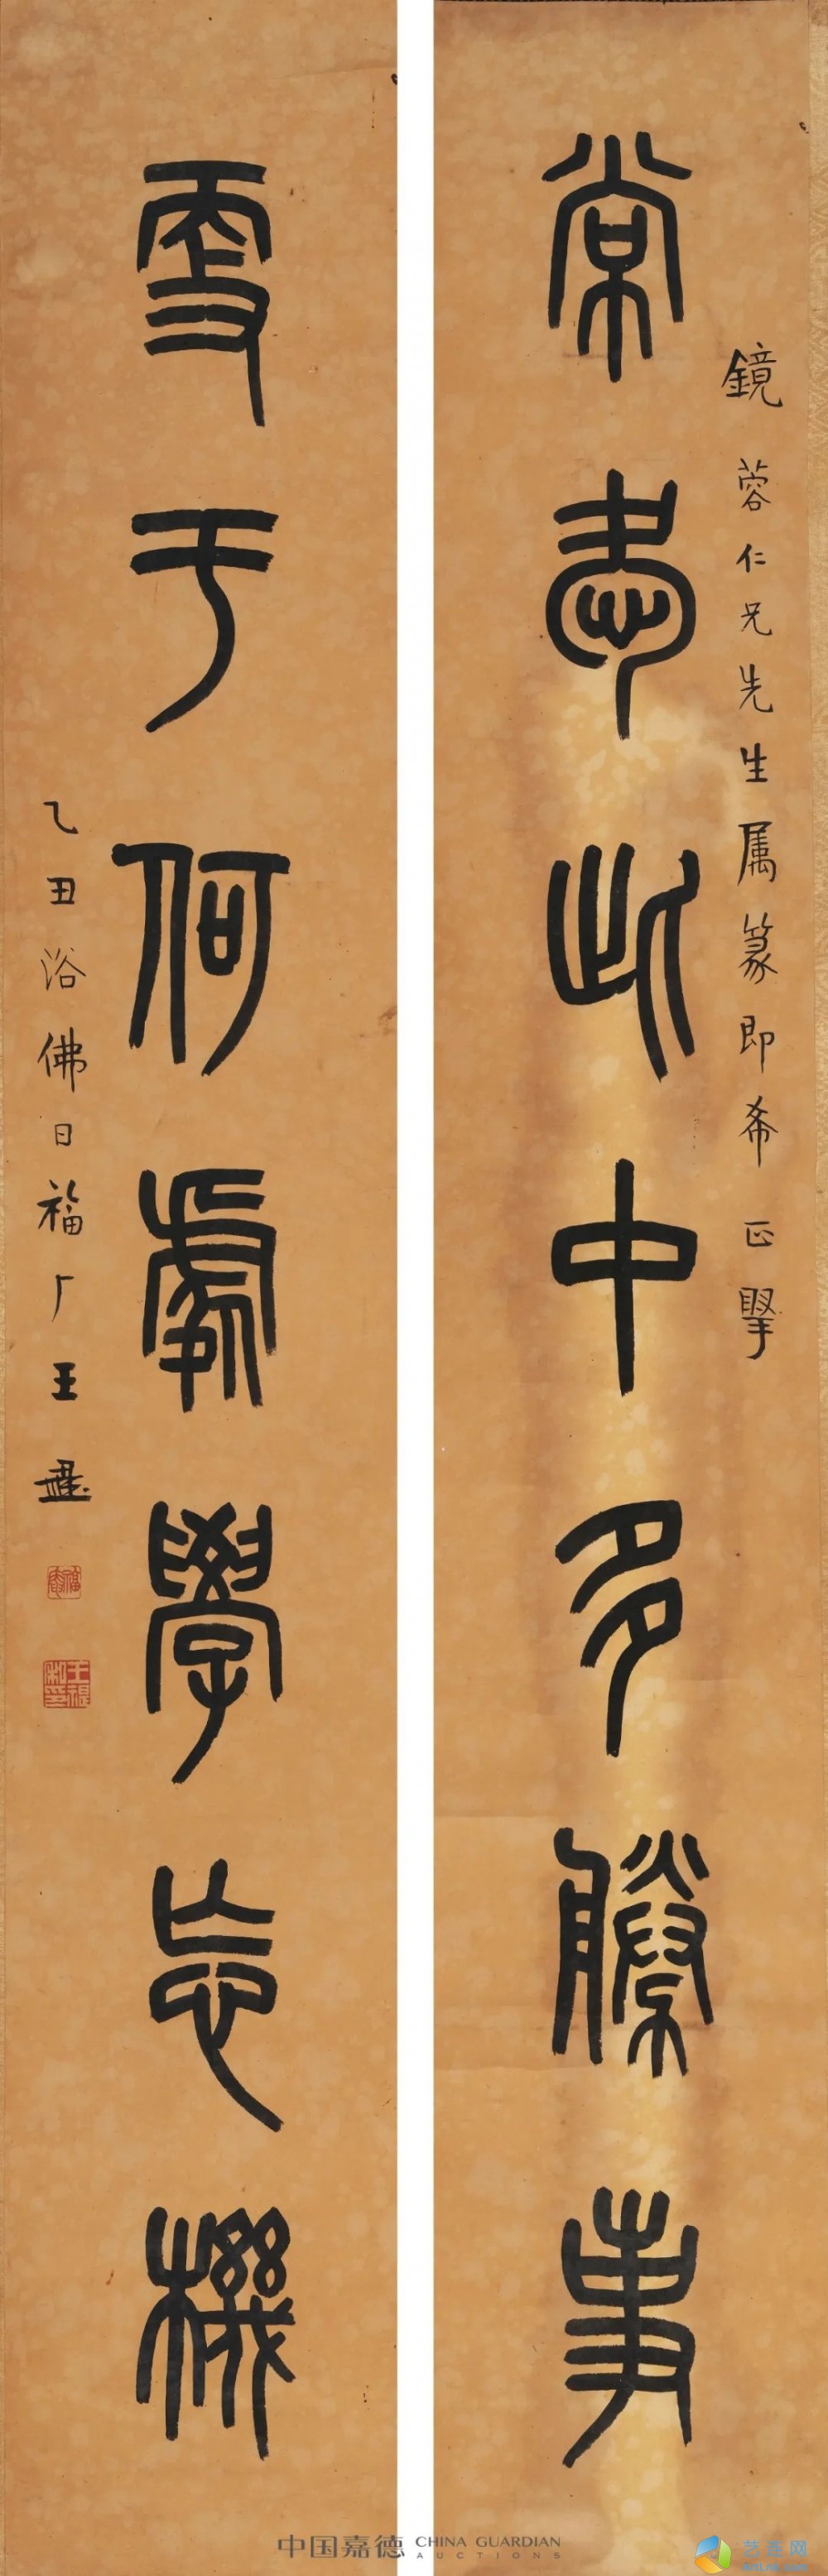 常愛此中多勝事
鏡蓉仁兄先生属篆即希正掔
更于何處學忘機
乙丑浴佛日福厂王禔
福庵
王禔私印
中国嘉德 CHINA GUARDIAN AUCTIONS
艺连网